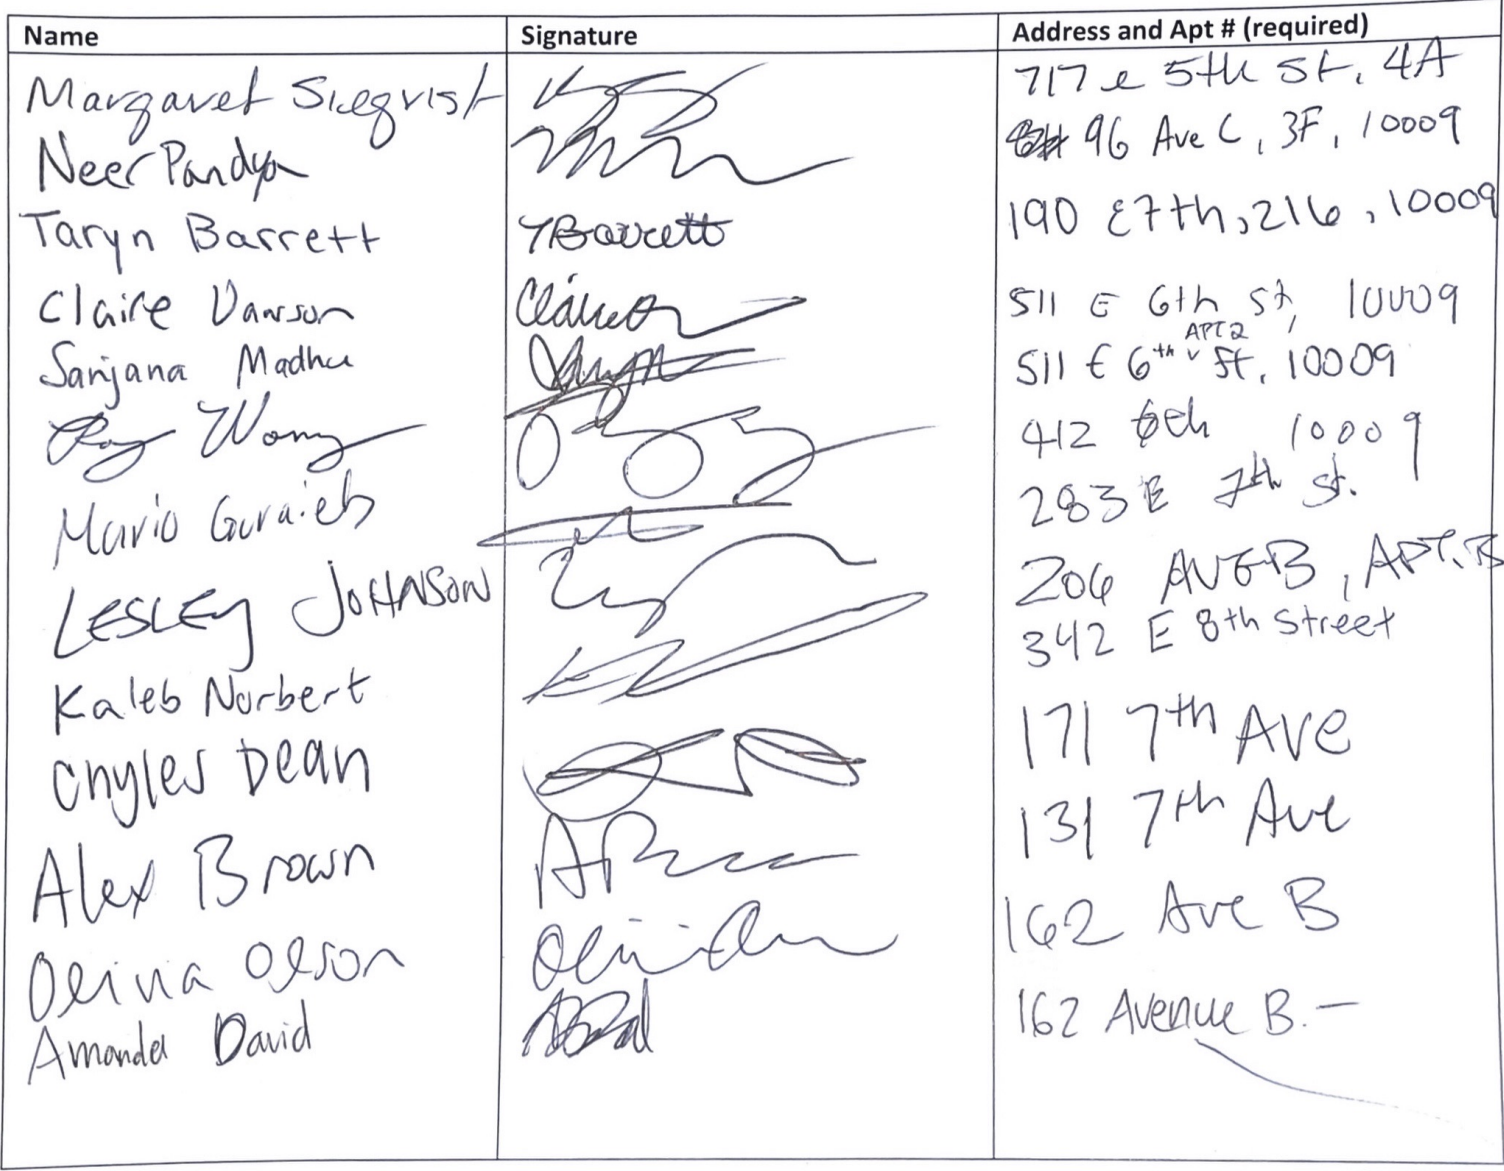 Name Signature Address and Apt # (required)
Margaret 717 e 5th St, 4A
Neer Pandya 96 Ave C, 3F, 10009
Taryn Barrett TBarrett 190 E7th, 216, 10009
Claire Dawson 511 E 6th St, 10009
APT 2
Sanjana Madhu 511 E 6th St, 10009
Wong 412 6th 10009
Mario Guraieb 283 E 7th St.
LESLEY JOHNSON 206 AVE B, APT.
Kaleb Norbert 342 E 8th Street
Chyler Dean 171 7th Ave
Alex Brown 131 7th Ave
Olivia Olson 162 Ave B
Amanda David 162 Avenue B. —